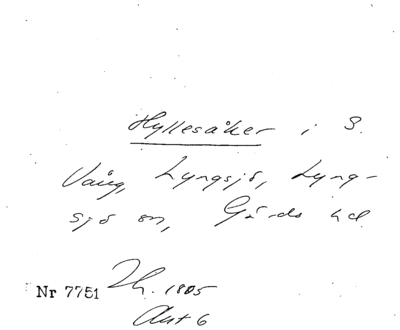 Hyllesåker i S.
Vång, Lyngsjö, Lyng-
sjö sn, Gärds hd
Nr 7751 Zh. 1805
Akt 6